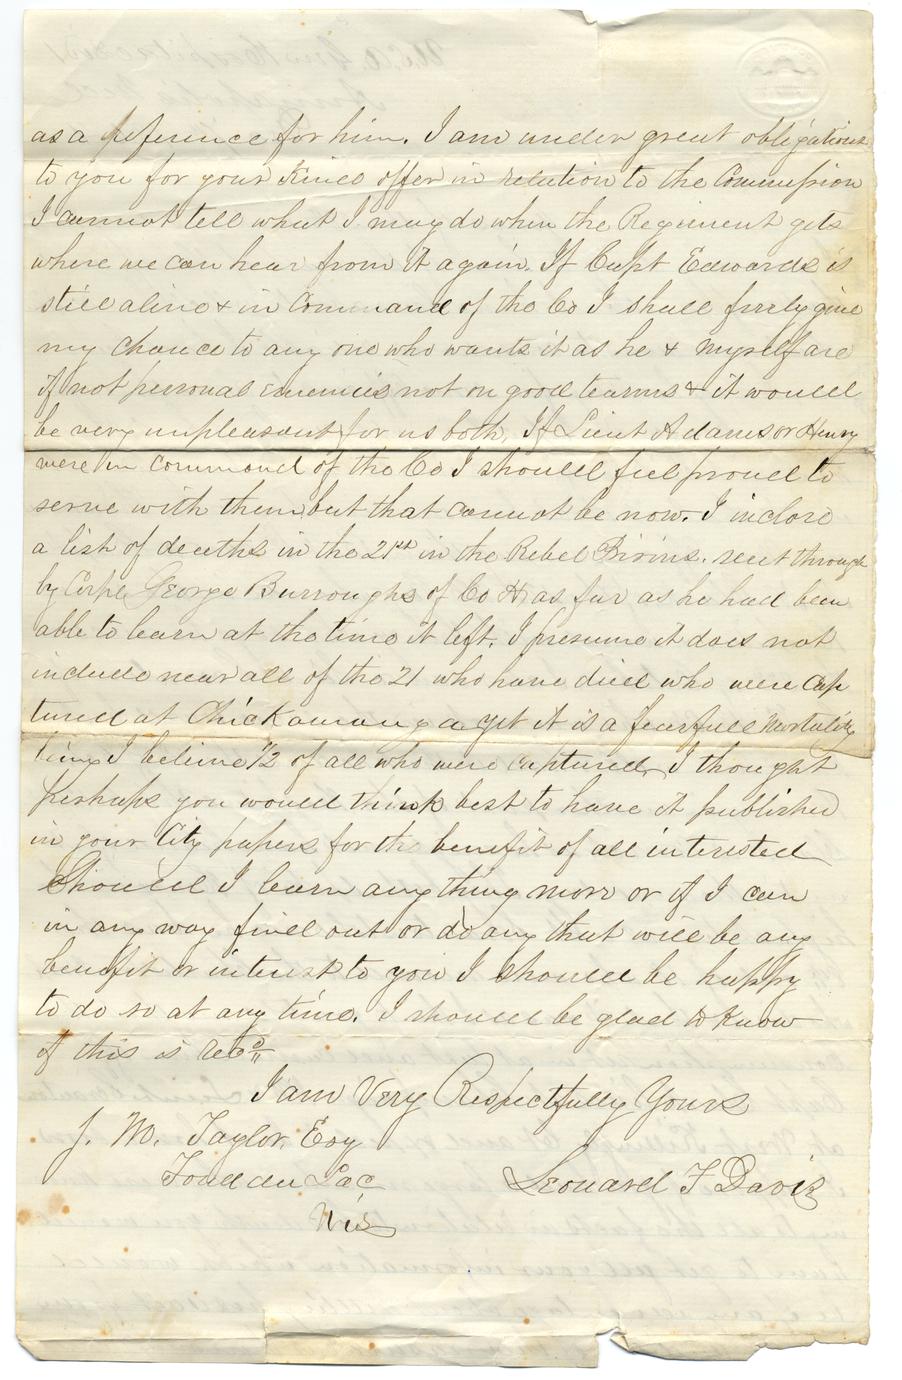 as a reference for him. I am under great obligations
to you for your kind offer in relation to the Commission
I cannot tell what I may do when the Regiment gets
where we can hear from it again. If Capt Edwards is
still alive & in Command of the Co I shall freely give
my chance to any one who wants it as he & myself are
if not personal enemies not on good tearms & it would
be very unpleasant for us both, If Lieut Adams or Henry
were in command of the Co I should feel proud to
serve with them but that cannot be now. I inclose
a list of deaths in the 21st in the Rebel Prisons. sent through
by Corpl George Burroughs of Co H as far as he had been
able to learn at the time it left. I presume it does not
include near all of the 21 who have died who were Cap
tured at Chickamauga yet it is a fearfull Mortality
being I believe 1/2 of all who were captured, I thought
perhaps you would think best to have it published
in your City papers for the benefit of all interested
Should I learn any thing more or if I can
in any way find out or do any that will be any
benefit or interest to you I should be happy
to do so at any time. I should be glad to know
of this is Recd
I am Very Respectfully Yours
J. M. Taylor, Esq
Fond du Lac
Wis
Leonard F Davis